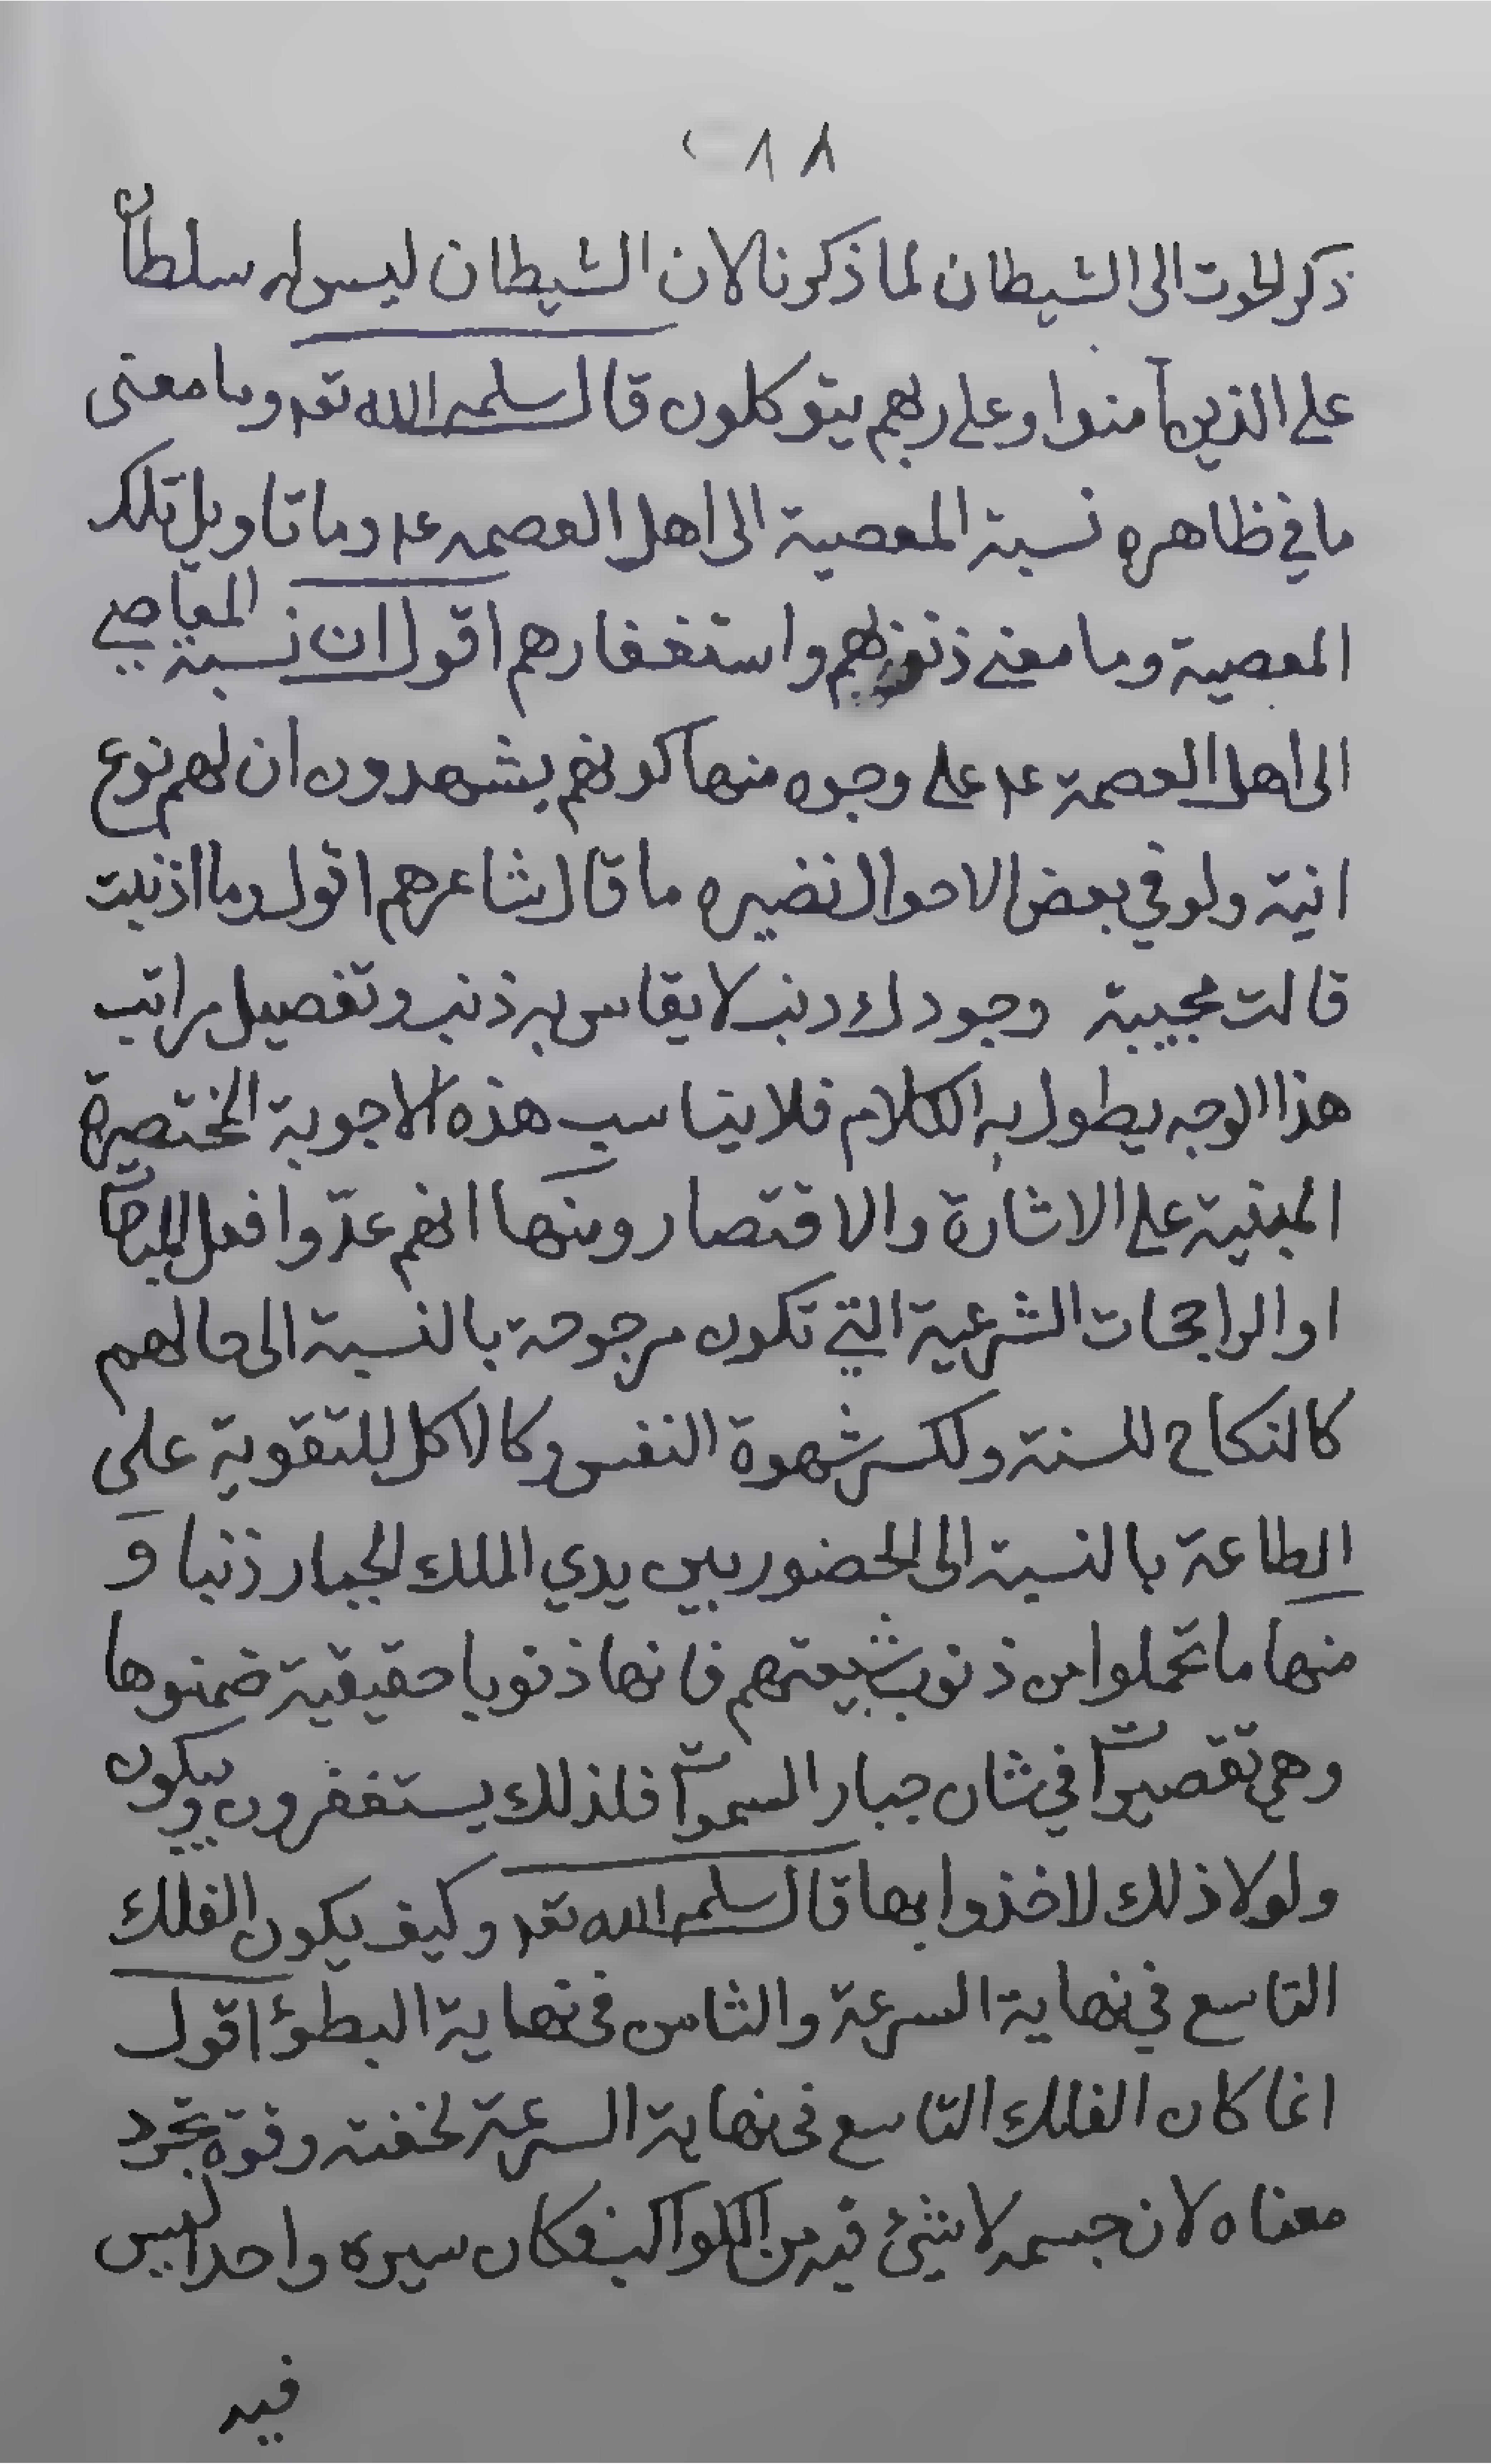 ٨٨
ذكر الحوت الى الشيطان لما ذكرنا لان الشيطان ليس له سلطان
على الذين آمنوا وعلى ربهم يتوكلون قال سلمه الله تعه وما معنى
ما في ظاهره نسبة المعصية الى اهل العصمه عم وما تاويل تلك
المعصية وما معنى ذنوبهم واستغفارهم اقول ان نسبة المعاصي
الى اهل العصمة عم على وجوه منها كونهم يشهدون ان لهم نوع
انية ولو في بعض الاحوال نضيره ما قال شاعرهم اقول وما اذنبت
قالت مجيبة وجودك دنب لا يقاس به ذنب وتفصيل مراتب
هذا الوجه يطول به الكلام فلا يناسب هذه الاجوبة المختصرة
المبنية على الاشارة والاقتصار ومنها انهم عدّوا فعل المباحات
او الراجحات الشرعية التي تكون مرجوحة بالنسبة الى حالهم
كالنكاح للسنة ولكسر شهوة النفس وكالاكل للتقوية على
الطاعة بالنسبة الى الحضور بين يدي الملك الجبار ذنبا و
منها ما تحملوا من ذنوب شيعتهم فانها ذنوبا حقيقية ضمنوها
وهي تقصيرات في شان جبار السموات فلذلك يستغفرون ويبكون
ولولا ذلك لاخذوا بها قال سلمه الله تعه وكيف يكون الفلك
التاسع في نهاية السرعة والثامن فى نهاية البطؤ اقول
انما كان الفلك التاسع فى نهاية السرعة لخفته وقوة تجرد
معناه لان جسمه لا شئ فيه من الكواكب فكان سيره واحدا ليس
فيه